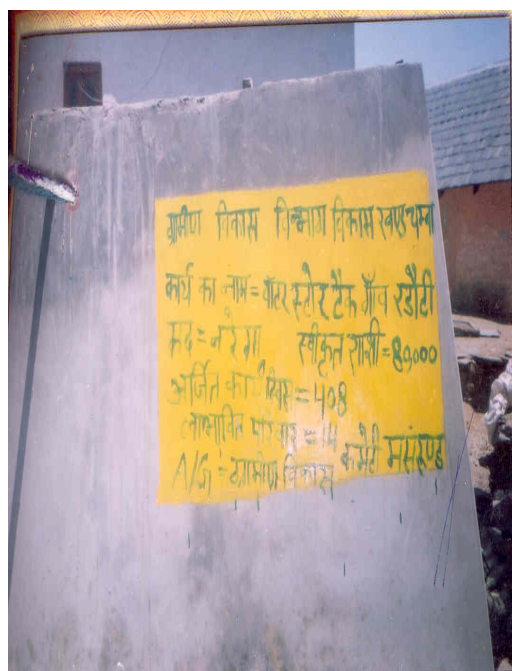 ग्रामीण विकास विभाग विकास खण्ड चम्बा
कार्य का नाम = वॉटर स्टोर टैंक गाँव रडौटी
मद = नरेगा स्वीकृत राशी = 80,000
अर्जित कार्य दिवस = 408
लाभान्वित परिवार = 14
A/G = ग्रामीण विकास कमेटी मसरुण्ड